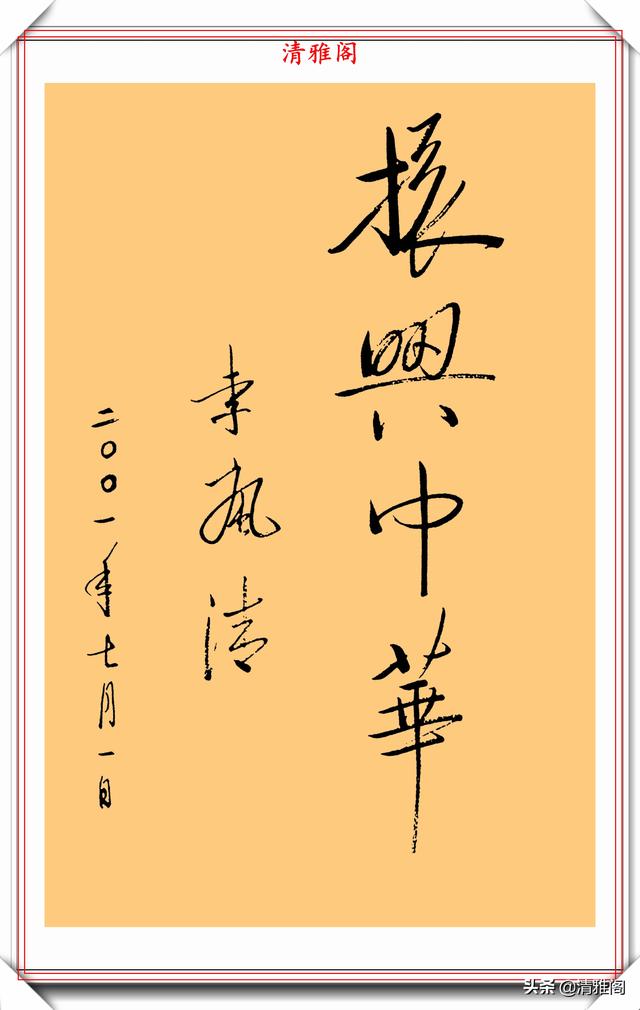 清雅阁
振興中華
李嵐清
二〇〇一年七月一日
头条 @清雅阁